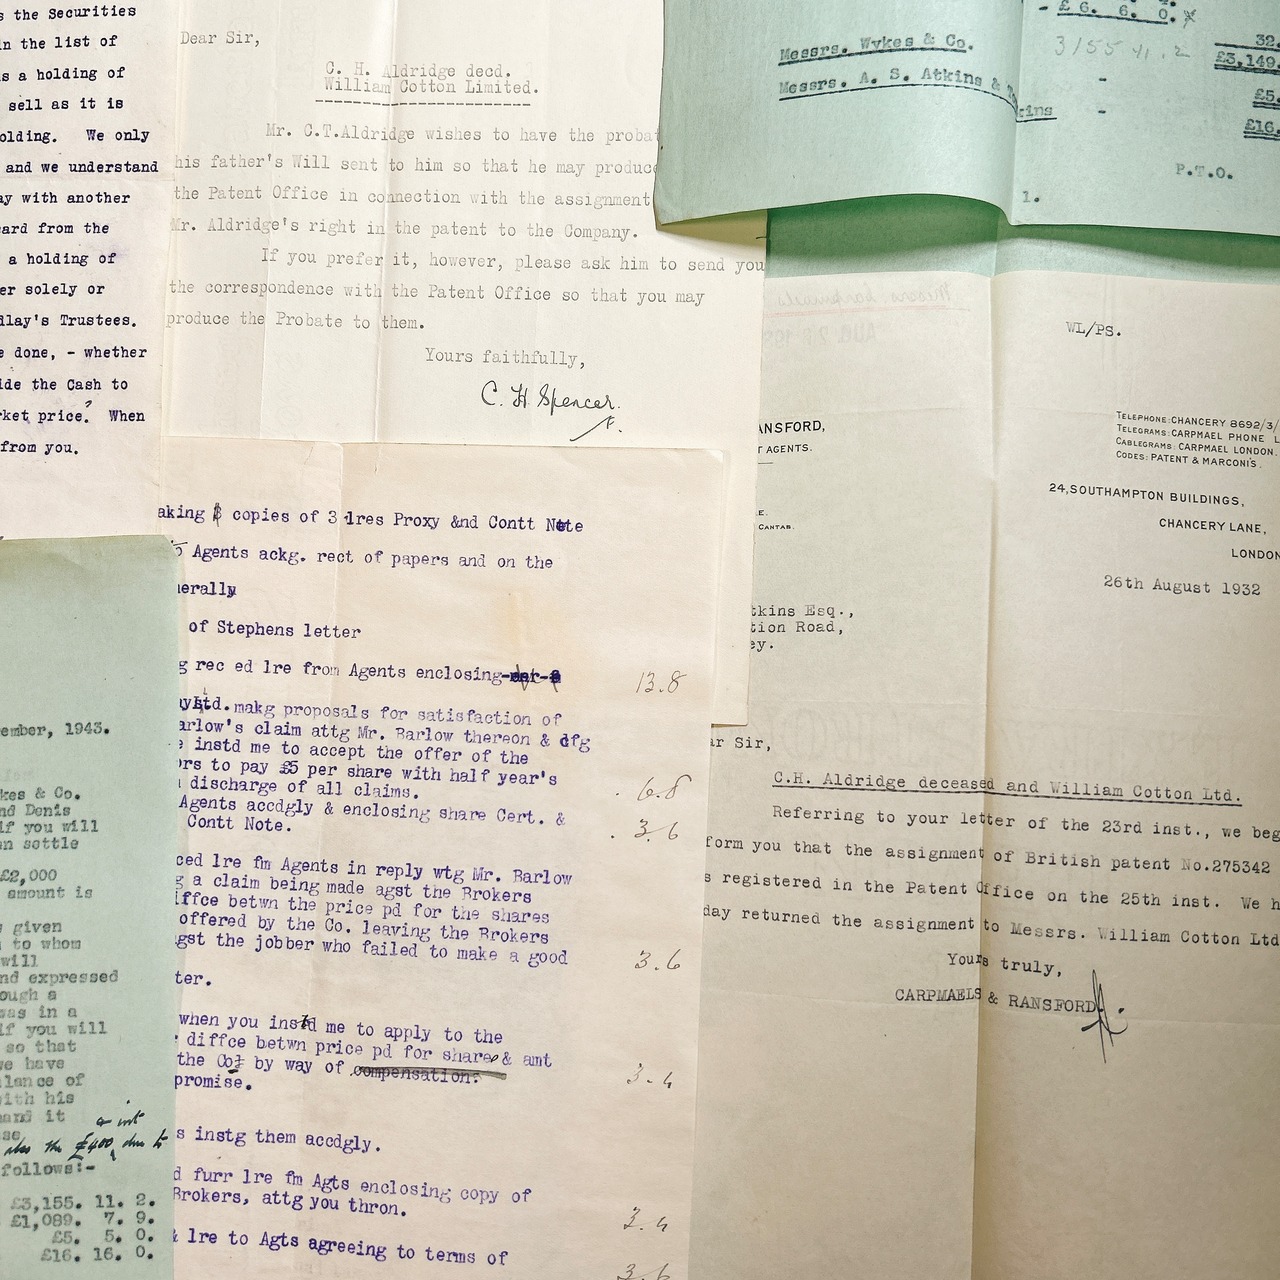 s the Securities
in the list of
s a holding of
sell as it is
olding. We only
and we understand
ay with another
ard from the
a holding of
er solely or
dlay's Trustees.
e done, - whether
ide the Cash to
rket price? When
from you.
Dear Sir,
C. H. Aldridge decd.
William Cotton Limited.
Mr. C.T.Aldridge wishes to have the probat
his father's Will sent to him so that he may produce
the Patent Office in connection with the assignment
Mr. Aldridge's right in the patent to the Company.
If you prefer it, however, please ask him to send you
the correspondence with the Patent Office so that you may
produce the Probate to them.
Yours faithfully,
C. H. Spencer.
- £ 6. 6. 0.
32.
Messrs. Wykes & Co.
3155 11. 2
£3,149.
Messrs. A. S. Atkins &
kins
-
£5.
-
£16.
P.T.O.
1.
WL/PS.
ANSFORD,
T AGENTS.
.E.
CANTAB.
TELEPHONE: CHANCERY 8692/3/
TELEGRAMS: CARPMAEL PHONE L
CABLEGRAMS: CARPMAEL LONDON.
CODES: PATENT & MARCONI'S.
24, SOUTHAMPTON BUILDINGS,
CHANCERY LANE,
LONDON
26th August 1932
tkins Esq.,
tion Road,
ey.
ar Sir,
C.H. Aldridge deceased and William Cotton Ltd.
Referring to your letter of the 23rd inst., we beg
form you that the assignment of British patent No.275342
s registered in the Patent Office on the 25th inst. We h
day returned the assignment to Messrs. William Cotton Ltd
Yours truly,
CARPMAELS & RANSFORD.
aking copies of 3 lres Proxy &nd Contt Note
to Agents ackg. rect of papers and on the
nerally
of Stephens letter
g rec ed lre from Agents enclosing
13.8
Ltd. makg proposals for satisfaction of
arlow's claim attg Mr. Barlow thereon & dfg
e instd me to accept the offer of the
ors to pay £5 per share with half year's
n discharge of all claims.
6.8
Agents accdgly & enclosing share Cert. &
Contt Note.
3.6
ced lre fm Agents in reply wtg Mr. Barlow
g a claim being made agst the Brokers
iffce betwn the price pd for the shares
offered by the Co. leaving the Brokers
gst the jobber who failed to make a good
3.6
ter.
when you instd me to apply to the
diffce betwn price pd for share & amt
the Co: by way of compensation.
promise.
3.4
s instg them accdgly.
d furr lre fm Agts enclosing copy of
Brokers, attg you thron.
3.4
& lre to Agts agreeing to terms of
3.6
ember, 1943.
kes & Co.
nd Denis
if you will
en settle
£2,000
amount is
given
to whom
will
nd expressed
ough a
was in a
if you will
so that
we have
lance of
with his
and it
se
also the £400 & int due to
follows:-
£3,155. 11. 2.
£1,089. 7. 9.
£5. 5. 0.
£16. 16. 0.